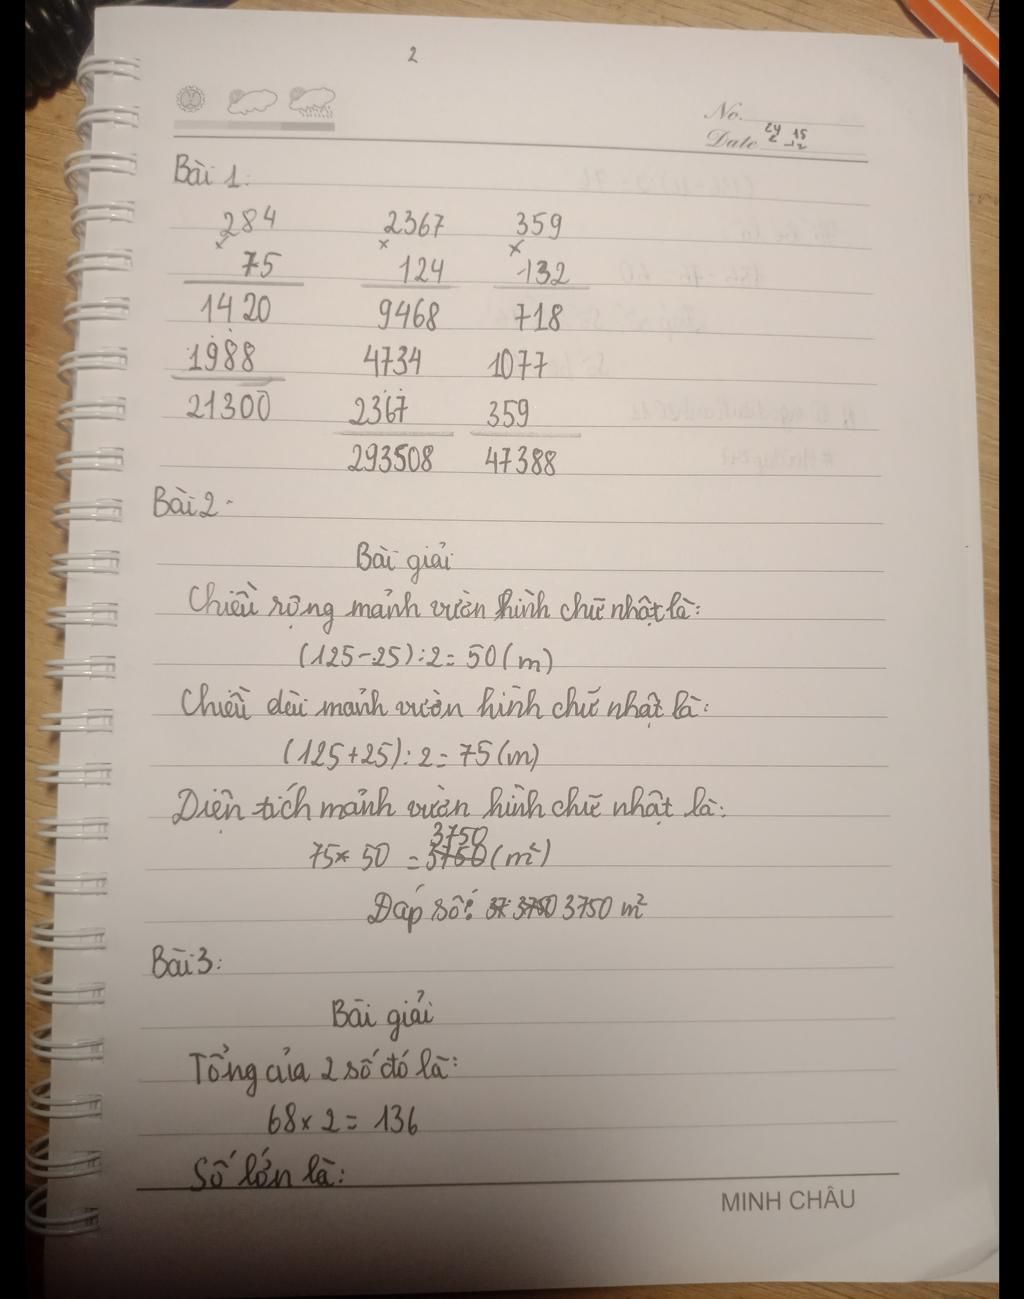 2
No.
Date 24 15
2 12
Bài 1:
284 2367 359
× × ×
75 124 132
1420 9468 718
1988 4734 1077
21300 2367 359
293508 47388
Bài 2
Bài giải
Chiều rộng mảnh vườn hình chữ nhật là:
(125-25):2= 50(m)
Chiều dài mảnh vườn hình chữ nhật là:
(125+25):2= 75(m)
Diện tích mảnh vườn hình chữ nhật là:
75× 50 = 3750 (m²)
Đáp số: 3750 m²
Bài 3:
Bài giải
Tổng của 2 số đó là:
68× 2= 136
Số lớn là:
MINH CHÂU